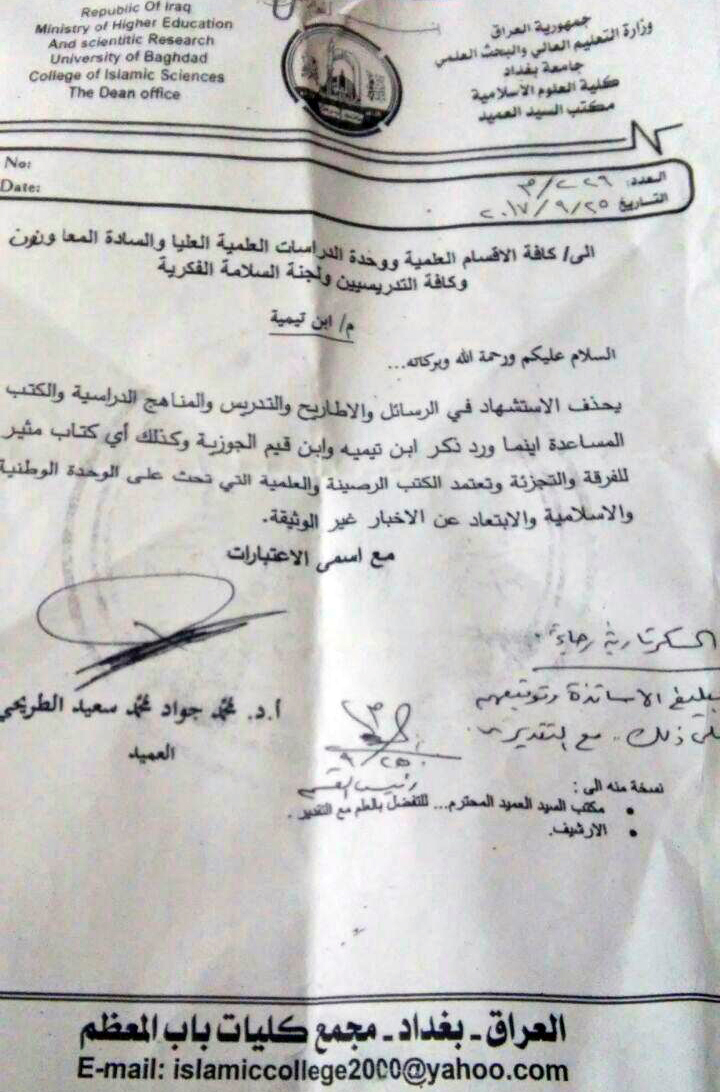 Republic Of Iraq
Ministry of Higher Education
And scientitic Research
University of Baghdad
College of Islamic Sciences
The Dean office
جمهورية العراق
وزارة التعليم العالي والبحث العلمي
جامعة بغداد
كلية العلوم الاسلامية
مكتب السيد العميد
No:
Date:
العدد: ٣/٢٢٦
التاريخ ٢٠١٧/٩/٢٥
الى/ كافة الاقسام العلمية ووحدة الدراسات العلمية العليا والسادة المعاونون
وكافة التدريسيين ولجنة السلامة الفكرية
م/ ابن تيمية
السلام عليكم ورحمة الله وبركاته...
يحذف الاستشهاد في الرسائل والاطاريح والتدريس والمناهج الدراسية والكتب
المساعدة اينما ورد ذكر ابن تيميه وابن قيم الجوزية وكذلك أي كتاب مثير
للفرقة والتجزئة وتعتمد الكتب الرصينة والعلمية التي تحث على الوحدة الوطنية
والاسلامية والابتعاد عن الاخبار غير الوثيقة.
مع اسمى الاعتبارات
أ.د. محمد جواد محمد سعيد الطريحي
العميد
السكرتارية رجاءً
تبليغ الاساتذة وتوقيعهم
على ذلك .. مع التقدير
٩/٢٥
رئيس القسم
نسخة منه الى :
• مكتب السيد العميد المحترم... للتفضل بالعلم مع التقدير .
• الارشيف.
العراق - بغداد - مجمع كليات باب المعظم
E-mail: islamiccollege2000@yahoo.com